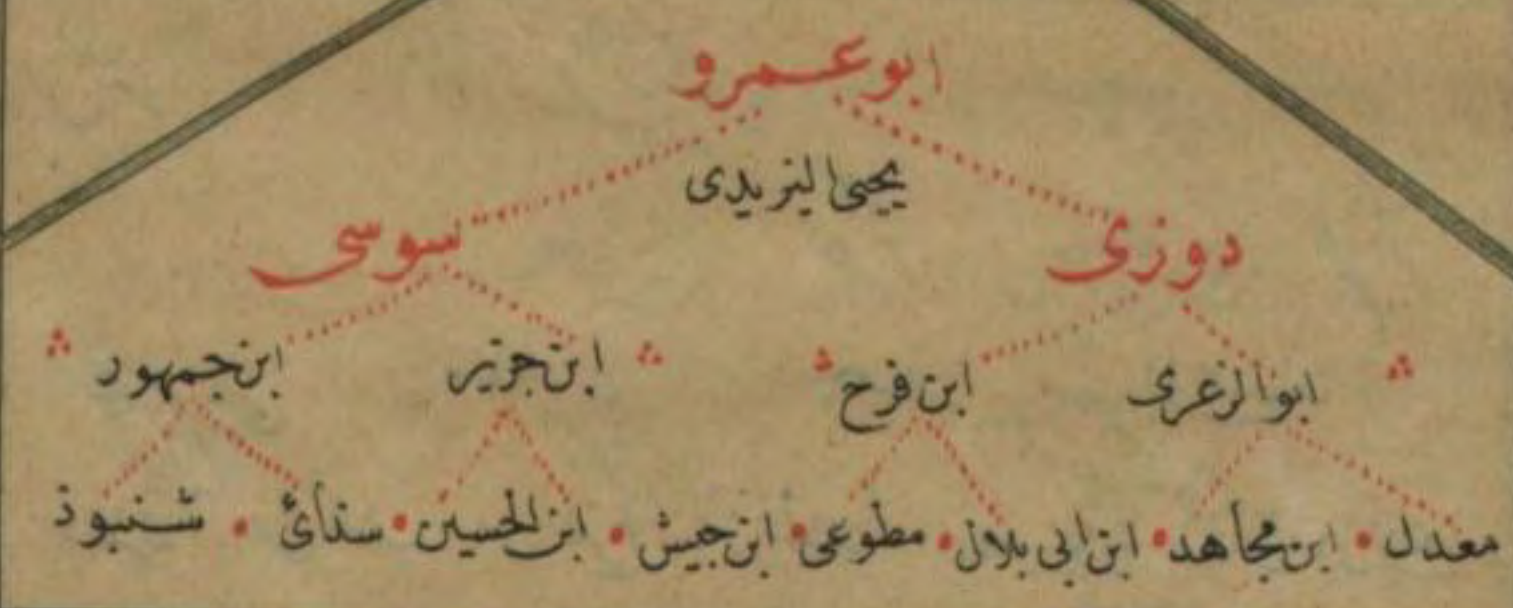 ابو عمرو
یحیی الیزیدی
دوزی سوسی
ابو الزعری ابن فرح ابن جزیر ابن جمهور
معدل ابن مجاهد ابن ابی بلال مطوعی ابن جیش ابن الحسین سنائ شنبوذ